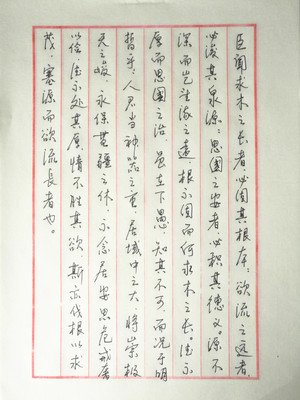 臣闻求木之长者,必固其根本;欲流之远者,
必浚其泉源;思国之安者,必积其德义。源不
深而岂望流之远,根不固而何求木之长。德不
厚而思国之治,虽在下愚,知其不可,而况于明
哲乎!人君当神器之重,居域中之大,将崇极
天之峻,永保无疆之休。不念居安思危,戒奢
以俭,德不处其厚,情不胜其欲,斯亦伐根以求
茂,塞源而欲流长者也。